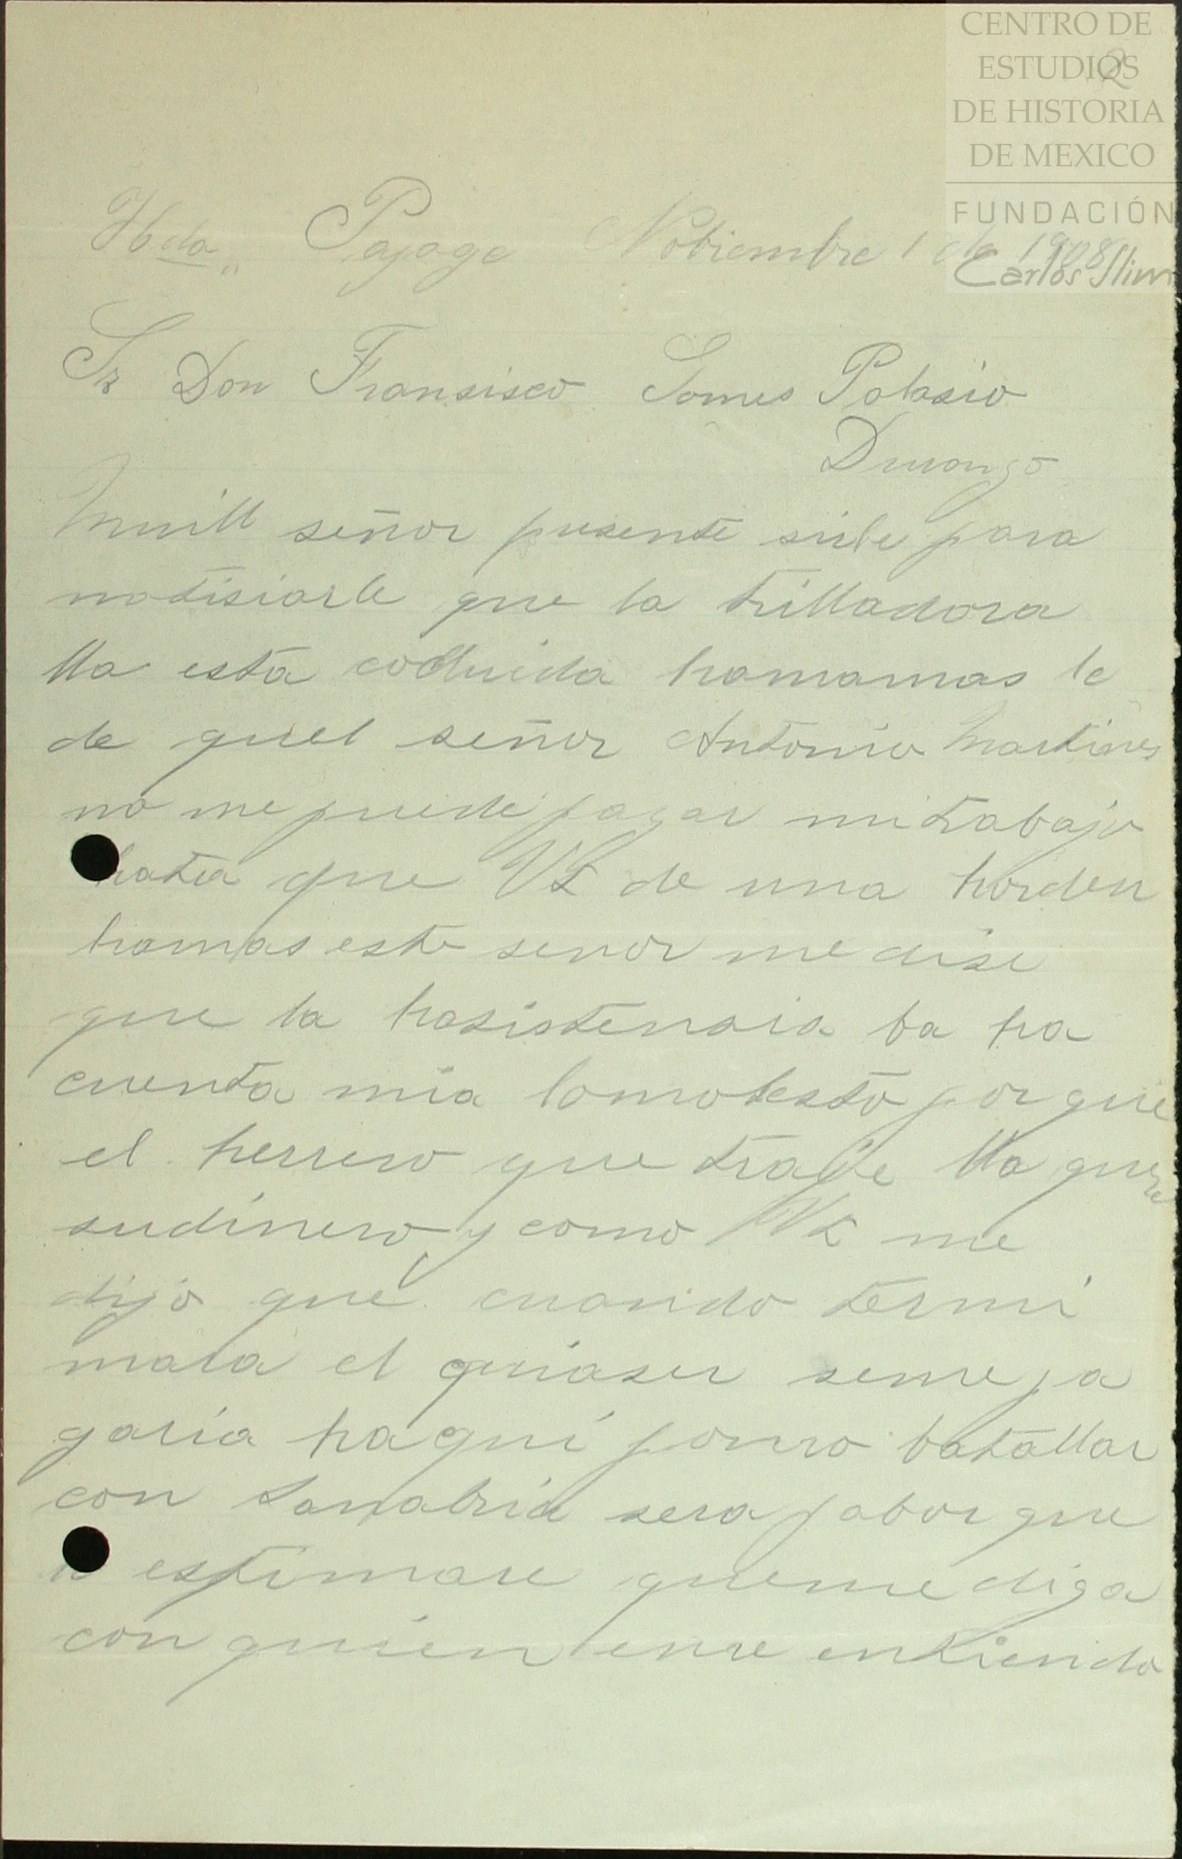 CENTRO DE
ESTUDIOS
DE HISTORIA
DE MEXICO
FUNDACIÓN
Carlos Slim
2
Hda Pajage Nobiembre 1 de 1908
Sr Don Fransisco Gomes Palasio
Durango
Muill señor presente sirbe para
notisiarle que la trilladora
lla está hamamas le
de quel señor Antonio Martines
no me puede pagar mitrabajo
hata que Vd de una horden
hamas este senor me dise
que la hasistensia ba ha
cuenta mia lomolesto por que
el herrero que traije lla quere
sudinero y como Vd me
dijo que cuando termi
nara el quiaser semepa
garia haqui porno batallar
con Sanabria sera fabor que
estimare queme diga
con quien me entiendo